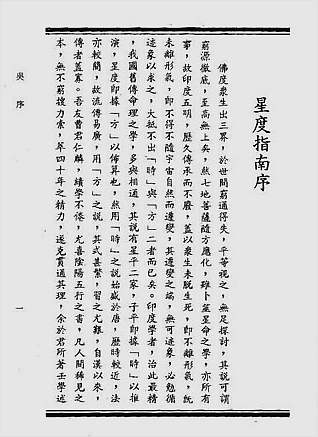 星度指南序
佛度衆生出三界，於世間窮通得失，平等視之，無足探討，其說可謂
窮源徹底，至高無上矣，然七地菩薩隨方應化，雖卜筮星命之學，亦所有
事，故印度五明，歷久傳承而不廢，蓋以衆生未脫生死，即不離形氣，既
未離形氣，即不得不隨宇宙自然而遷變，其遷變之端，無可迹象，必勉循
迹象以求之，大抵不出「時」與「方」二者而已矣。印度學者，治此最精
，我國舊傳命理之學，多與相通，其說有星平二家，子平即據「時」以推
演，星度即據「方」以佈算也，然用「時」之說始盛於唐，歷時較近，法
亦較簡，故流傳易廣，用「方」之說，其式甚繁，習之尤難，自漢以來，
傳者蓋寡。吾友曹君仁麟，績學不倦，尤喜陰陽五行之書，凡人間稀見之
本，無不窮搜力索，卒四十年之精力，遂克貫通其理，余於君所著壬學述
吳序
一